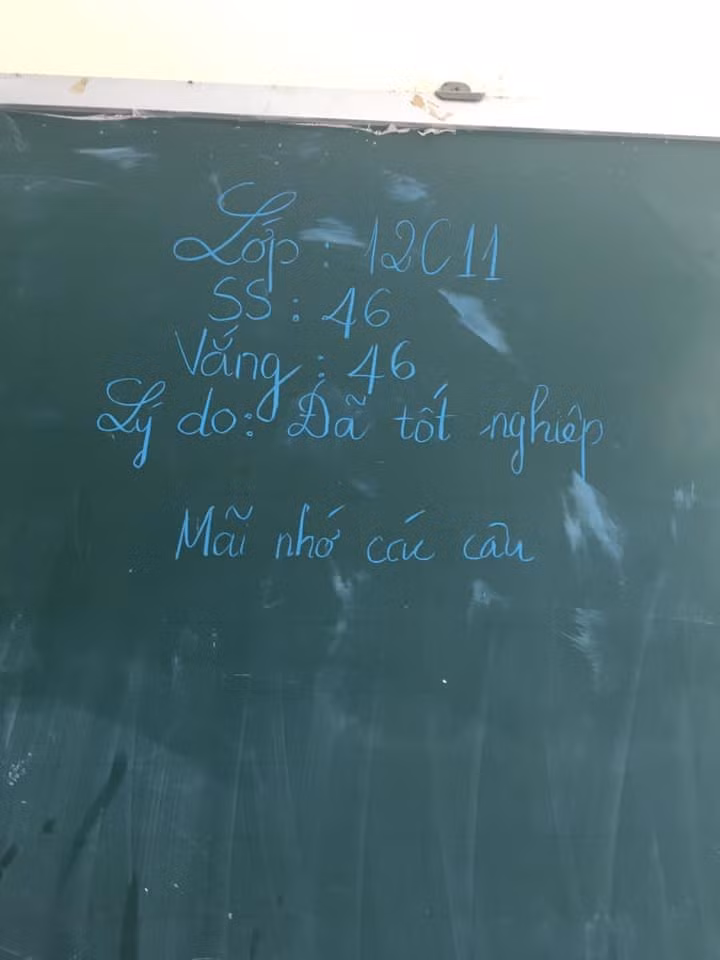 Lớp : 12C11
SS : 46
Vắng : 46
Lý do: Đã tốt nghiệp
Mãi nhớ các cậu